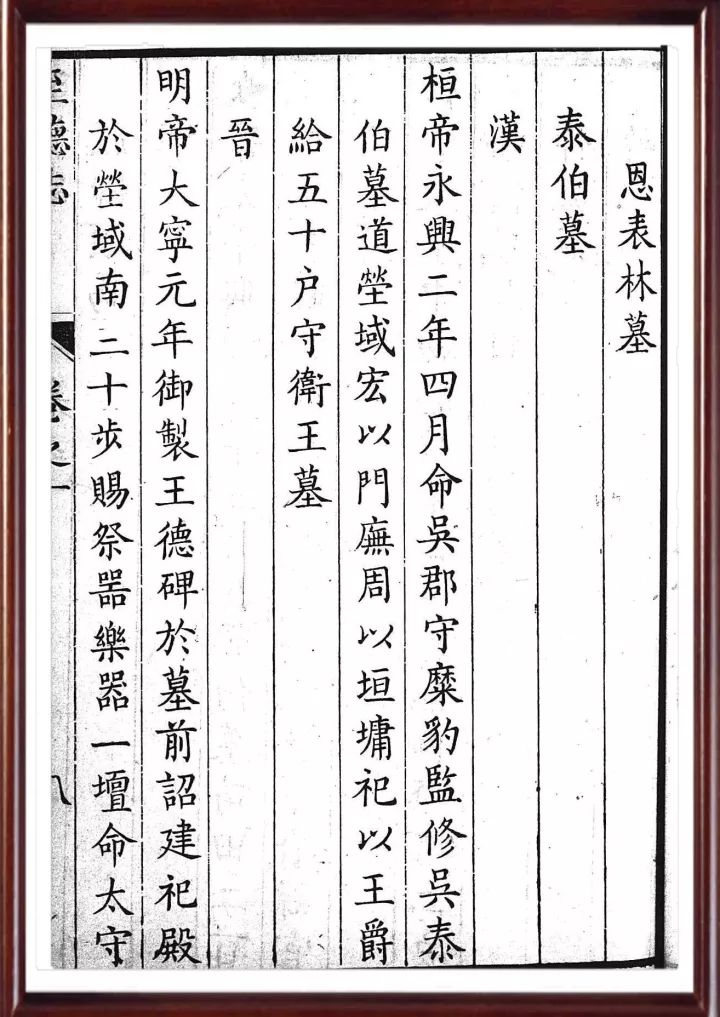 恩表林墓
泰伯墓
漢
桓帝永興二年四月命吳郡守糜豹監修吳泰
伯墓道塋域宏以門廡周以垣墉祀以王爵
給五十户守衛王墓
晉
明帝大寧元年御製王德碑於墓前詔建祀殿
於塋域南二十步賜祭噐樂噐一壇命太守
至德志
卷之一
八